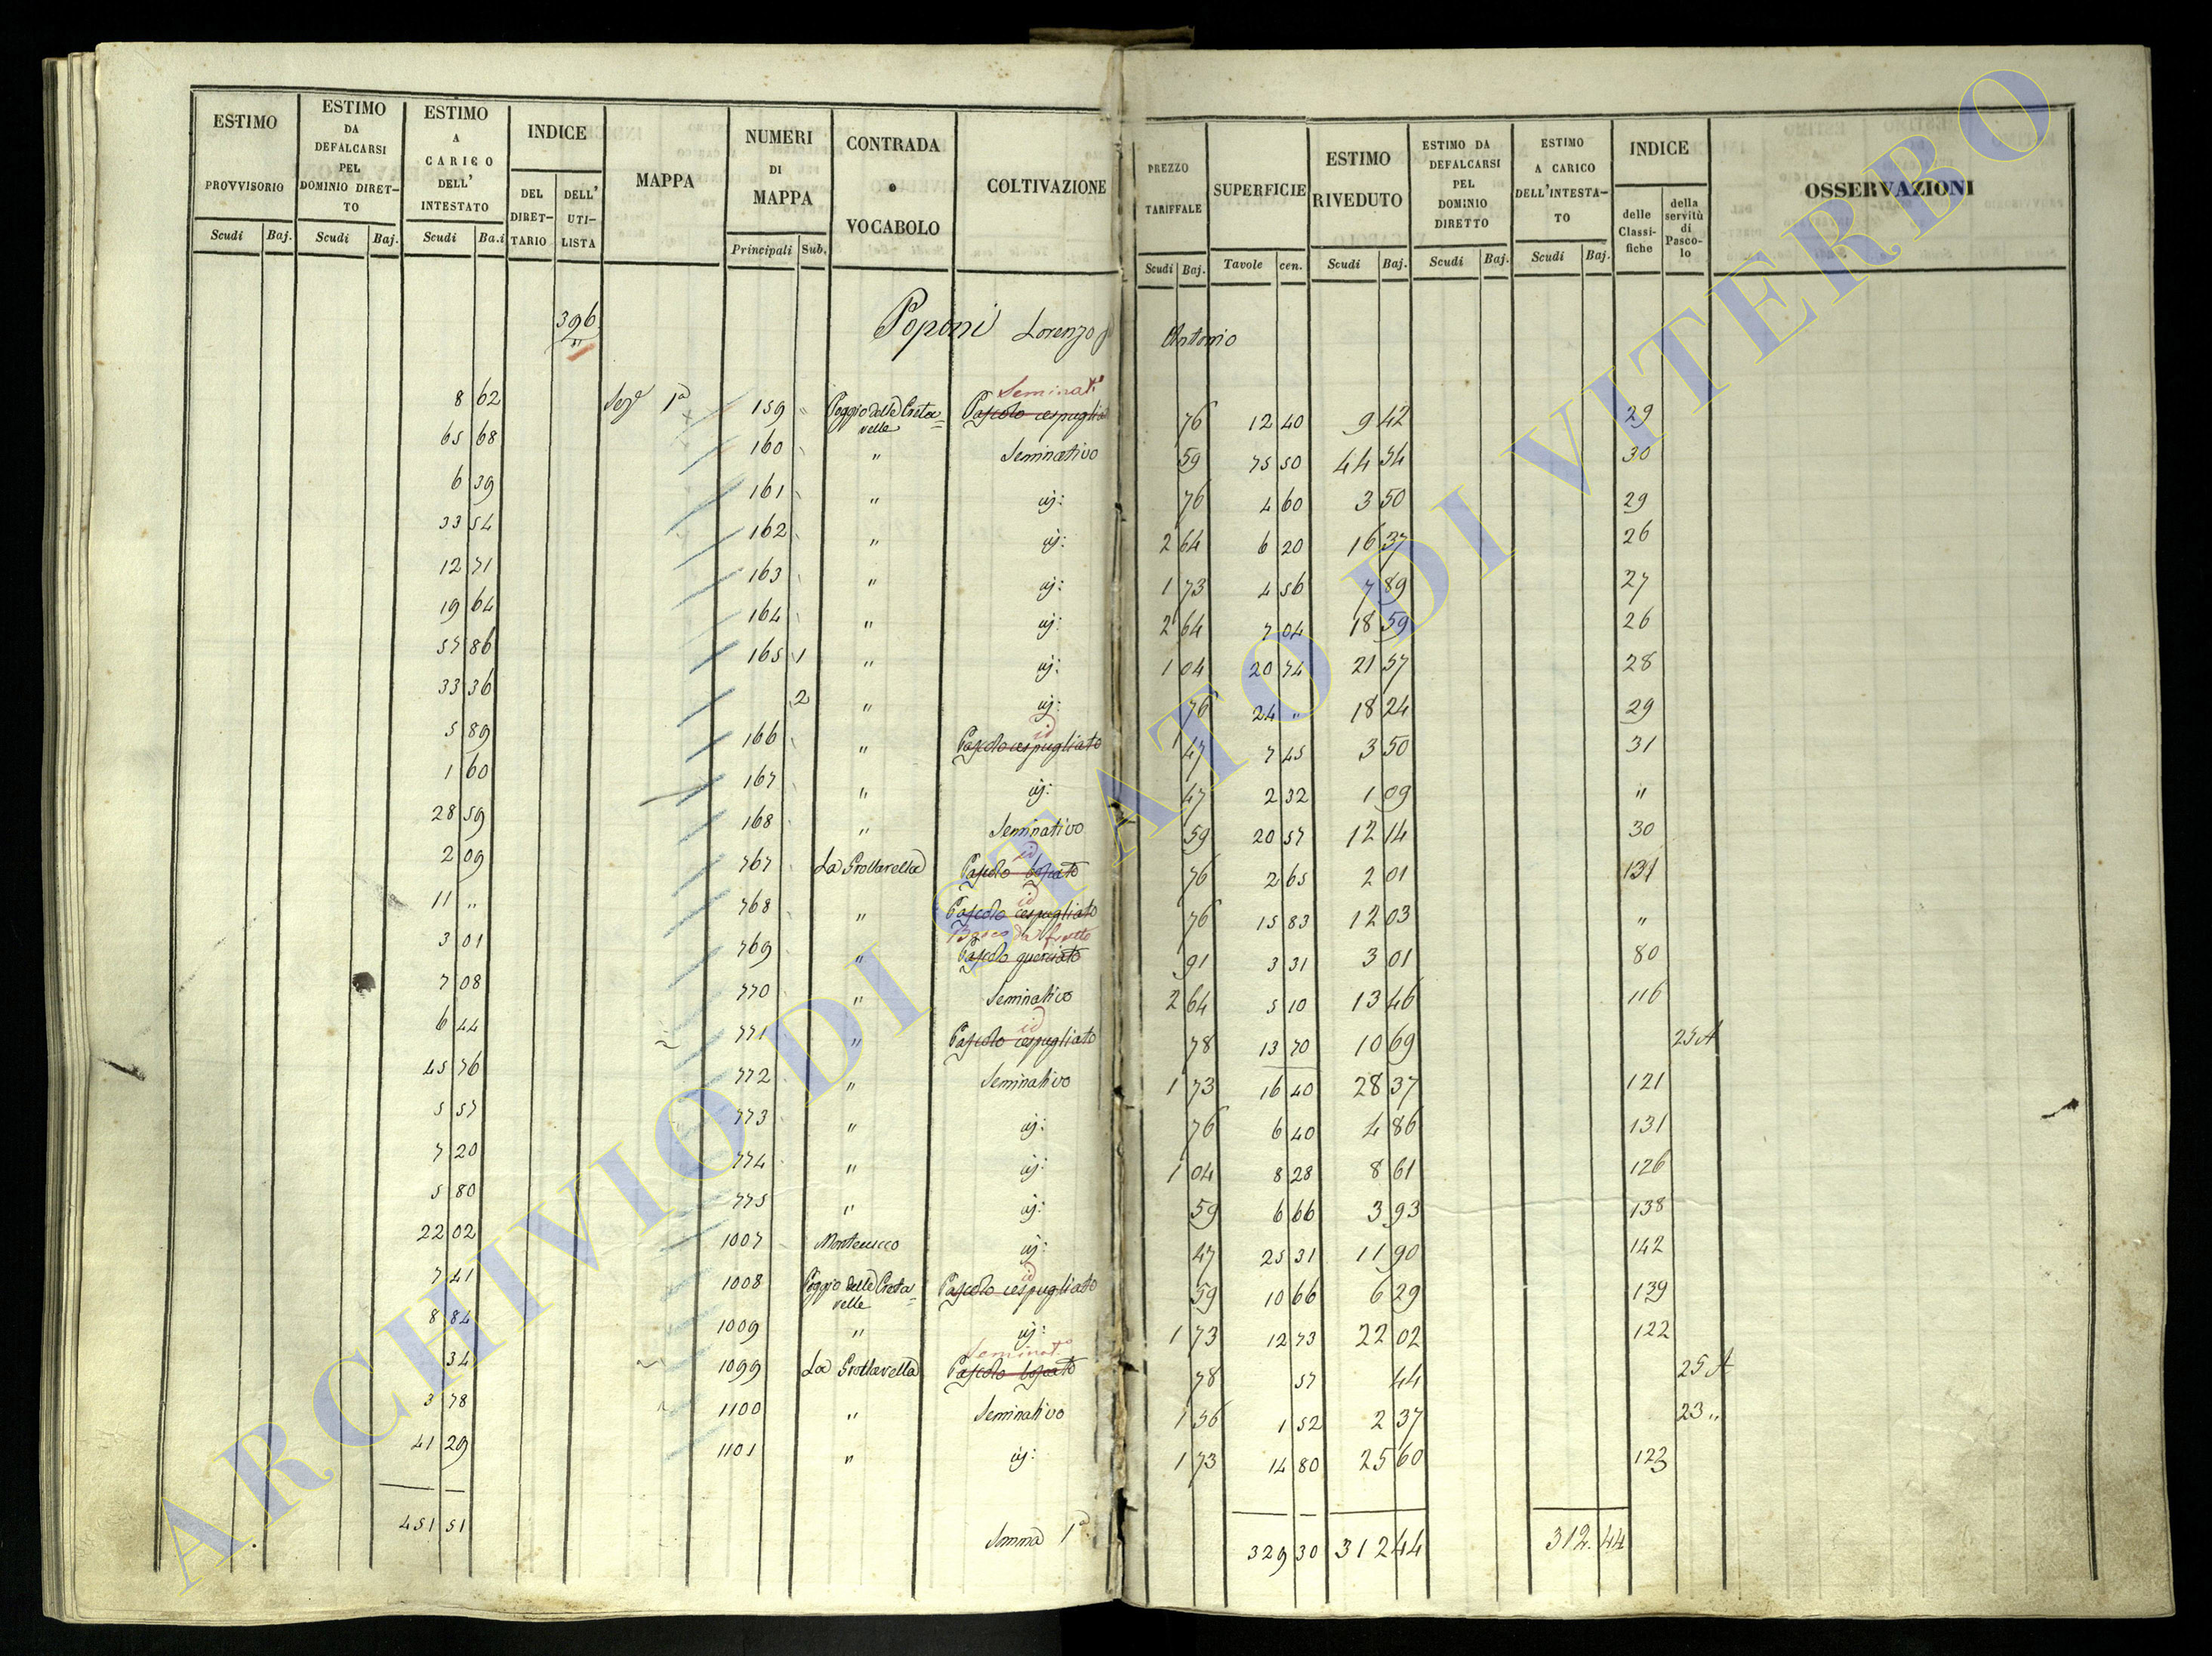 ESTIMO PROVVISORIO
ESTIMO DA DEFALCARSI PEL DOMINIO DIRET-TO
ESTIMO A CARICO DELL' INTESTATO
INDICE
DEL DIRET-TARIO
DELL' UTI-LISTA
MAPPA
NUMERI DI MAPPA
CONTRADA o VOCABOLO
COLTIVAZIONE
PREZZO TARIFFALE
SUPERFICIE
ESTIMO RIVEDUTO
ESTIMO DA DEFALCARSI PEL DOMINIO DIRETTO
ESTIMO A CARICO DELL'INTESTA-TO
INDICE
delle Classi-fiche
della servitù di Pasco-lo
OSSERVAZIONI
Scudi Baj. Scudi Baj. Scudi Ba.i Principali Sub. Scudi Baj. Tavole cen. Scudi Baj. Scudi Baj. Scudi Baj.
396 Poponi Lorenzo Antonio
"
Seminat.o
8 62 Sez.e 1a 159 " Poggio delle Creta= Pascolo cespugliato 76 12 40 9 42 29
velle
65 68 160 " Seminativo 59 75 50 44 54 30
6 39 161 " id: 76 4 60 3 50 29
33 54 162 " id: 2 64 6 20 16 37 26
12 71 163 " id: 1 73 4 56 7 89 27
19 64 164 " id: 2 64 7 04 18 59 26
57 86 165 1 " id: 1 04 20 74 21 57 28
33 36 2 " id: 76 24 " 18 24 29
id
5 89 166 " Pascolo cespugliato 47 7 45 3 50 31
1 60 167 " id: 47 2 32 1 09 "
28 59 168 " Seminativo 59 20 57 12 14 30
id
2 09 767 La Grottarella Pascolo boscato 76 2 65 2 01 131
id
11 " 768 " Pascolo cespugliato 76 15 83 12 03 "
Bosco da frutto
3 01 769 " Pascolo querciato 91 3 31 3 01 80
7 08 770 " Seminativo 2 64 5 10 13 46 116
id
6 44 771 " Pascolo cespugliato 78 13 70 10 69 25 A
45 76 772 " Seminativo 1 73 16 40 28 37 121
5 57 773 " id: 76 6 40 4 86 131
7 20 774 " id: 1 04 8 28 8 61 126
5 80 775 " id: 59 6 66 3 93 138
22 02 1007 Montecucco id: 47 25 31 11 90 142
id
7 41 1008 Poggio delle Creta= Pascolo cespugliato 59 10 66 6 29 139
velle
8 84 1009 " id: 1 73 12 73 22 02 122
Seminat.o
34 1099 La Grottarella Pascolo boscato 78 57 44 25 A
3 78 1100 " Seminativo 1 56 1 52 2 37 23 "
41 29 1101 " id: 1 73 14 80 25 60 123
451 51 Somma 1a 329 30 312 44 312. 44
ARCHIVIO DI STATO DI VITERBO